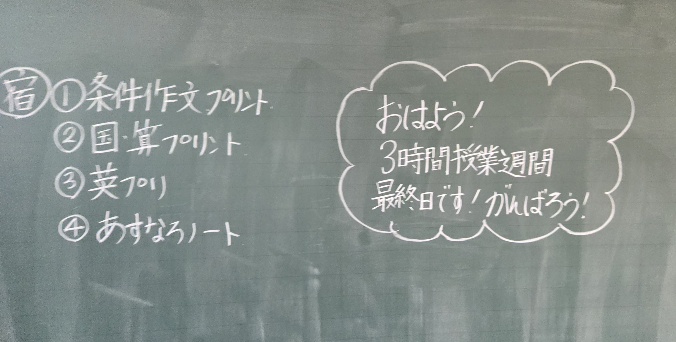 宿 ①条件作文プリント
②国・算プリント
③英プリ
④あすなろノート
おはよう!
3時間授業週間
最終日です!がんばろう!